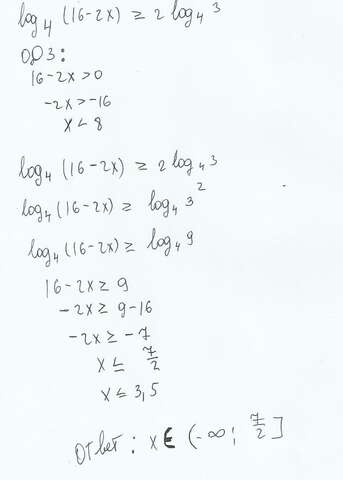 log₄ (16-2x) ≥ 2 log₄ 3
ОДЗ:
16-2x > 0
-2x > -16
x < 8
log₄ (16-2x) ≥ 2 log₄ 3
log₄ (16-2x) ≥ log₄ 3²
log₄ (16-2x) ≥ log₄ 9
16-2x ≥ 9
-2x ≥ 9-16
-2x ≥ -7
x ≤ 7/2
x ≤ 3,5
Ответ: x ∈ (-∞; 7/2]